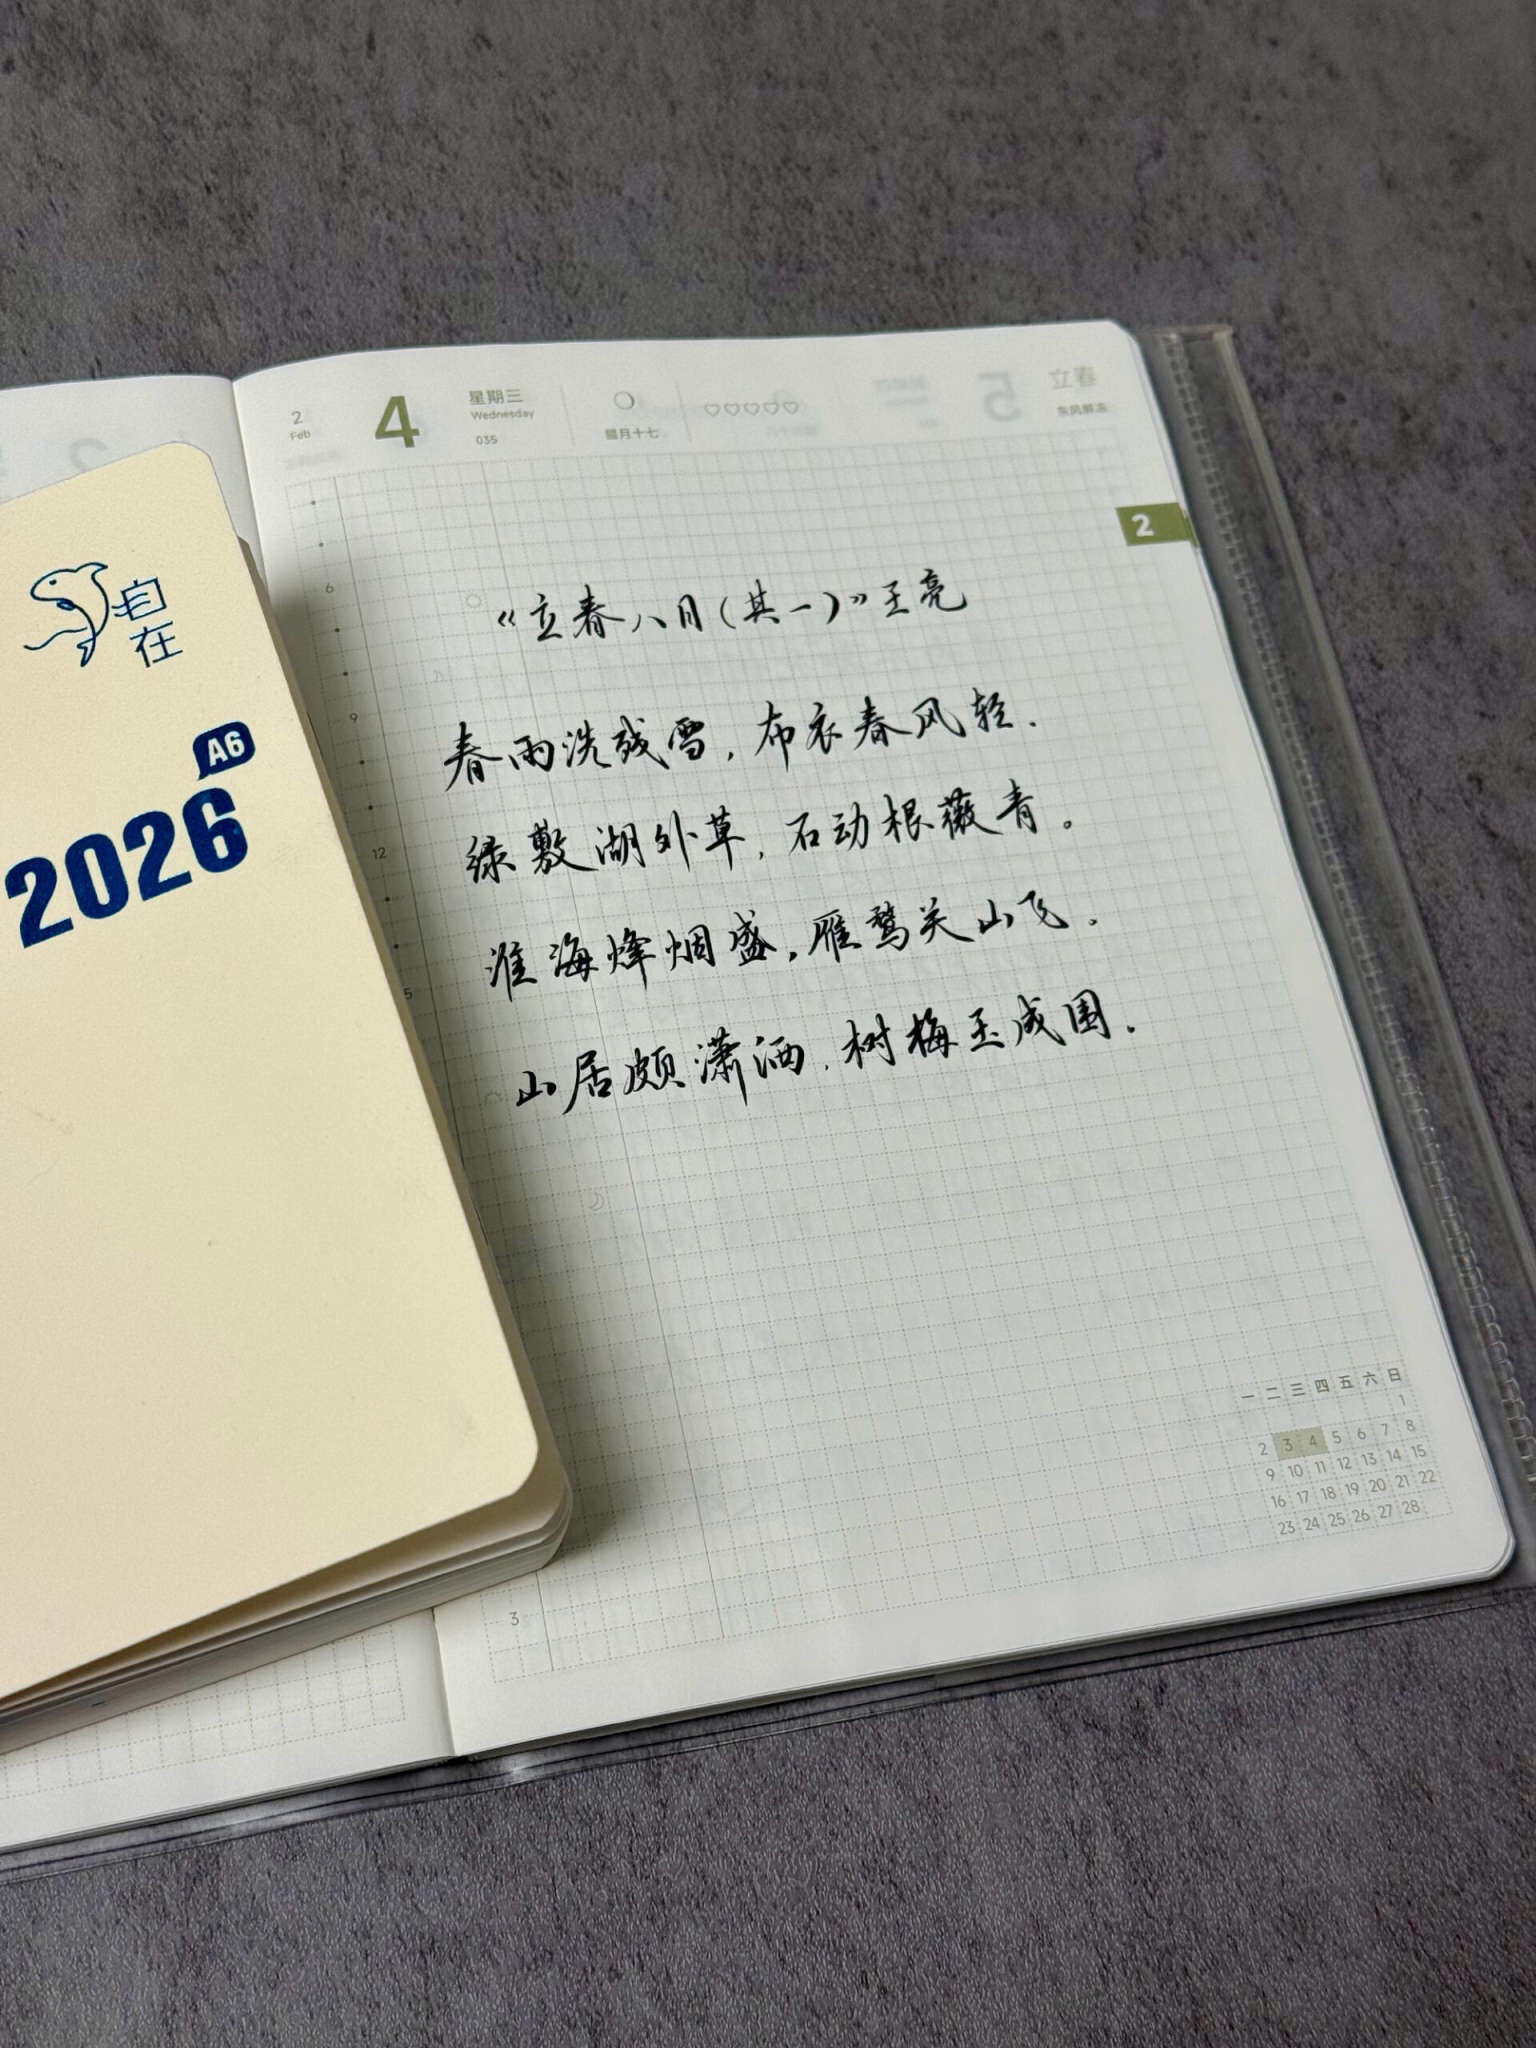 2
Feb
4
星期三
Wednesday
035
腊月十七
立春
东风解冻
2
自在
A6
2026
6
9
12
5
3
《立春八月(其一)》王亮
春雨洗残雪,布衣春风轻.
绿敷湖外草,石动根薇青。
淮海烽烟盛,雁鹜关山飞.
山居颇潇洒,树梅玉成围.
一 二 三 四 五 六 日
1
2 3 4 5 6 7 8
9 10 11 12 13 14 15
16 17 18 19 20 21 22
23 24 25 26 27 28